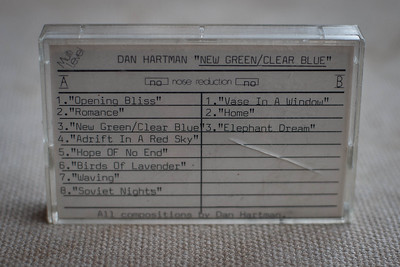 DAN HARTMAN "NEW GREEN/CLEAR BLUE"
A no noise reduction no B
1."Opening Bliss" 1."Vase In A Window"
2."Romance" 2."Home"
3."New Green/Clear Blue" 3."Elephant Dream"
4."Adrift In A Red Sky"
5."Hope OF No End"
6."Birds Of Lavender"
7."Waving"
8."Soviet Nights"
All compositions by Dan Hartman.